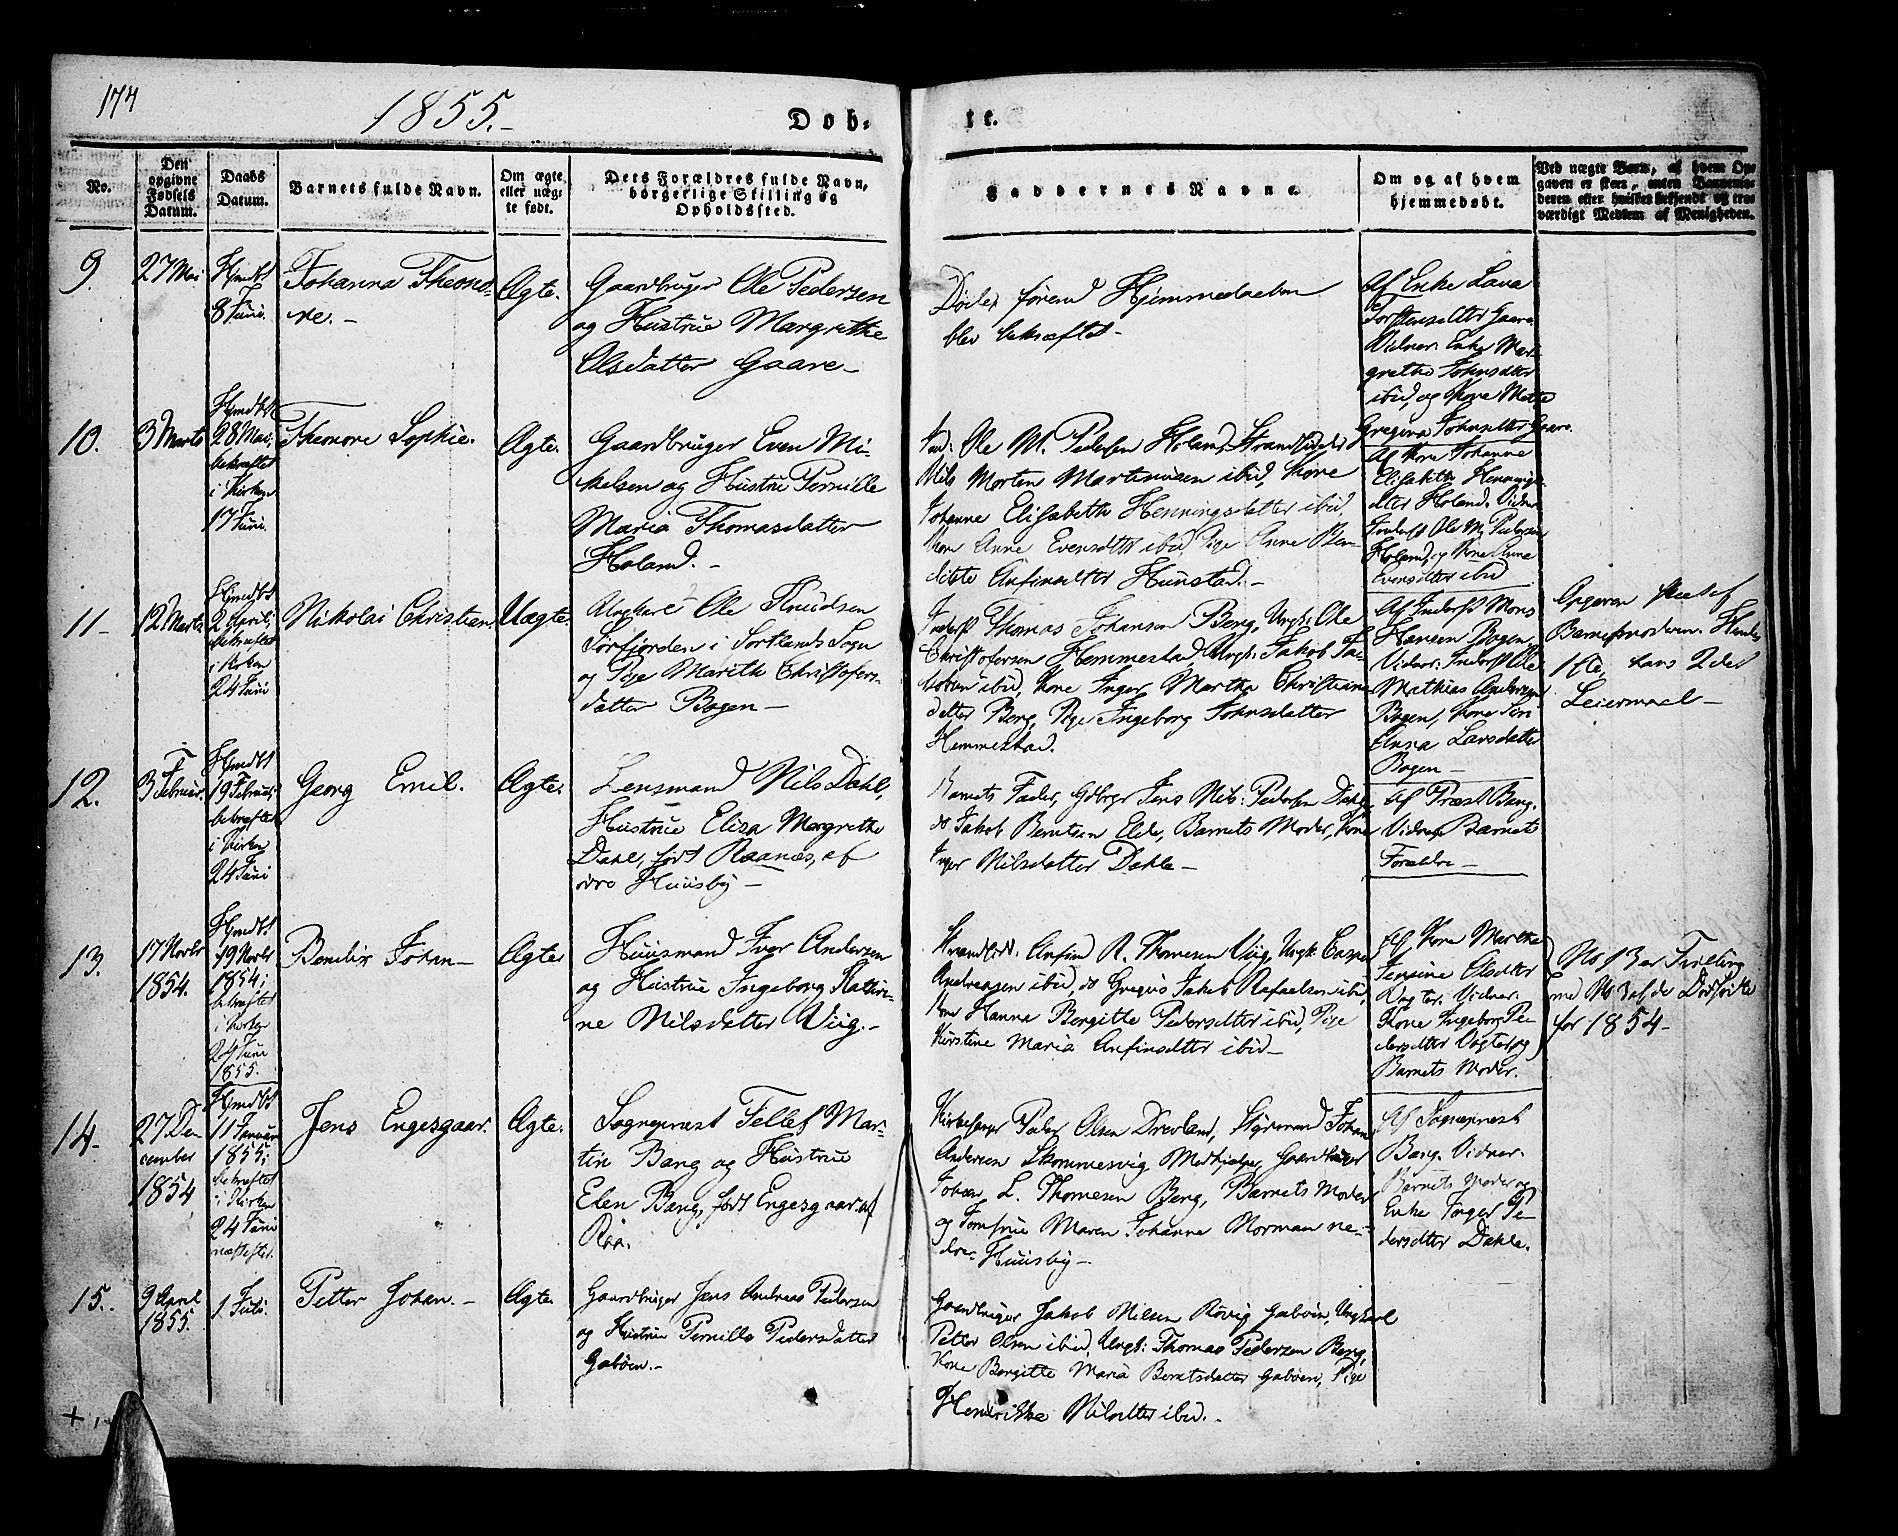 174
1855.-
Døb-
te.
No.
Den
opgivne
Fødsels
Datum.
Daabs
Datum.
Barnets fulde Navn.
Om ægte
eller uæg-
te født.
Dets Forældres fulde Navn,
borgerlige Stilling og
Opholdssted.
Faddernes Navne.
Om og af hvem
hjemmedøbt.
Ved uægte Børn, af hvem Op-
gaven er skeet, enten Barnemo-
deren eller hvilket bekjendt og tro-
værdigt Medlem af Menigheden.
9.
27 Mai
Hjmdbt
8 Juni.
Johanna Theono-
re.-
Ægte.
Gaardbruger Ole Pedersen
og Hustrue Margrethe
Olsdatter Gaare-
Døde, førend Hjemmedaaben
blev bekræftet-
Af Enke Lava
Torstensdtter Gaare.
Vidner: Enke Mar-
grethe Johnsdtter
ibid, og Kone Mette
Gregina Johnsdtter Gaare.
10.
3 Marts
Hjmdbt
28 Mai,
bekræftet
i Kirken
17 Juni.
Themore Sophie.
Ægte.
Gaardbruger Even Mi-
kelsen og Hustrue Pernille
Maria Thomasdatter
Holand.-
Ole M. Pedersen Holand, Strandsidder
Nils Morten Martinusen ibid, Kone
Johanne Elisabeth Henningsdatter ibid,
Kone Anne Evensdtter ibid, Pige Anne Ben-
ditte Anfinsdtter Hunstad.-
Af Kone Johanne
Elisabeth Hennings-
dtter Holand. Vidner
Ole M. Pedersen
Holand, og Kone Anne
Evensdtter ibid
11-
12 Marts
Hjmdbt
2 April,
bekræftet
i Kirken
24 Juni
Nikolai Christian
Uægte.
Ungkarl Ole Knudsen
Sørfjorden i Sortlands Sogn
og Pige Marith Christofers-
datter Bogen-
Inderst Thomas Johansen Berg, Ungk: Ole
Christofersen Hemmestad, Ungk: Jakob Ja-
kobsen ibid, Kone Inger Martha Christians-
datter Berg, Pige Ingeborg Johnsdatter
Hemmestad.
Af Inderst Mons
Hansen Bogen
Vidner: Inderst Ole
Mathias Andersen
Bogen, Kone Siri
Anna Larsdatter
Bogen-
Opgaven skeet af
Barnets moderen. Hendes
1ste, hans 2det
Leiermaal-
12.
3 Februar.
Hjmdbt
19 Februar,
bekræftet
i Kirken
24 Juni
Georg Emil.
Ægte.
Lensmand Nils Dahl,
Hustrue Eliza Margrethe
Dahl, født Raanæs, af
øvre Huusby-
Barnets Fader, Gdbrgr Jens Nils: Pedersen Dahle
do Jakob Berntsen Elde, Barnets Moder, Kone
Inger Nilsdatter Dahle-
Af Præst Bang.
Vidner Barnets
Forældre-
13.
17 Novbr
1854.
Hjmdbt
19 Novbr
1854;
bekræftet
i Kirken
24 Juni
1855.
Bendix Johan-
Ægte
Huusmand Iver Andersen
og Hustrue Ingeborg Kathri-
ne Nilsdatter Viig.-
Strandsdd: Anfin R. Thomesen Viig, Ungk: Casper
Andreasen ibid, do Gregus Jakob Rafaelsen ibid,
Kone Hanna Bergitte Pedersdtter ibid, Pige
Kirstine Maria Anfinsdtter ibid-
Af Kone Martha
Jensine Olsdtter
Vidner:
Kone Ingeborg Pe-
dersdtter og
Barnets Moder.
No 13 er Tvilling
med No 3 af de Dødfødte
for 1854-
14-
27 De-
cember
1854
Hjmdbt
11 Januar
1855;
bekræftet
i Kirken
24 Juni
næstefter.
Jens Engesgaar.
Ægte.
Sognepræst Tellef Mar-
tin Bang og Hustrue
Elen Bang, født Engesgaar af
Røe.
Kirkesanger Peder Olsen Drevland, Styrmand Johan
Andersen Skommesvig Medhjelper, Gaardbruger
Johan L. Thomesen Berg, Barnets Moder
og Jomfrue Maren Johanne Norman ne-
dre Huusby-
Af Sognepræst
Bang. Vidner:
Barnets Moder og
Enke Inger Pe-
dersdtter Dahle.
15.
9 April
1855.
1 Juli.
Petter Johan.-
Ægte.
Gaardbruger Jens Andreas Pedersen
og Hustrue Pernille Pedersdatter
Gabøen.-
Gaardbruger Jakob Nilsen Røvig Gabøen, Ungkarl
Peter Olsen ibid, Ungk: Thomas Pedersen Berg,
Kone Bergitte Maria Berntsdatter Gabøen, Pige
Hendrikke Nilsdtter ibid.-